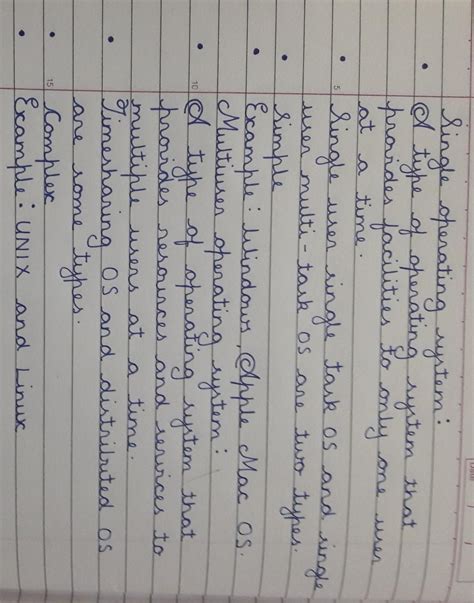 Date
Single operating system:
• A type of operating system that
provides facilities to only one user
at a time.
5
• Single user single task OS and single
user multi-task OS are two types.
• Simple
• Example: Windows, Apple Mac OS.
Multiuser operating system:
10
• A type of operating system that
provides resources and services to
multiple users at a time.
• Timesharing OS and distributed OS
are some types.
15
• Complex
• Example: UNIX and Linux